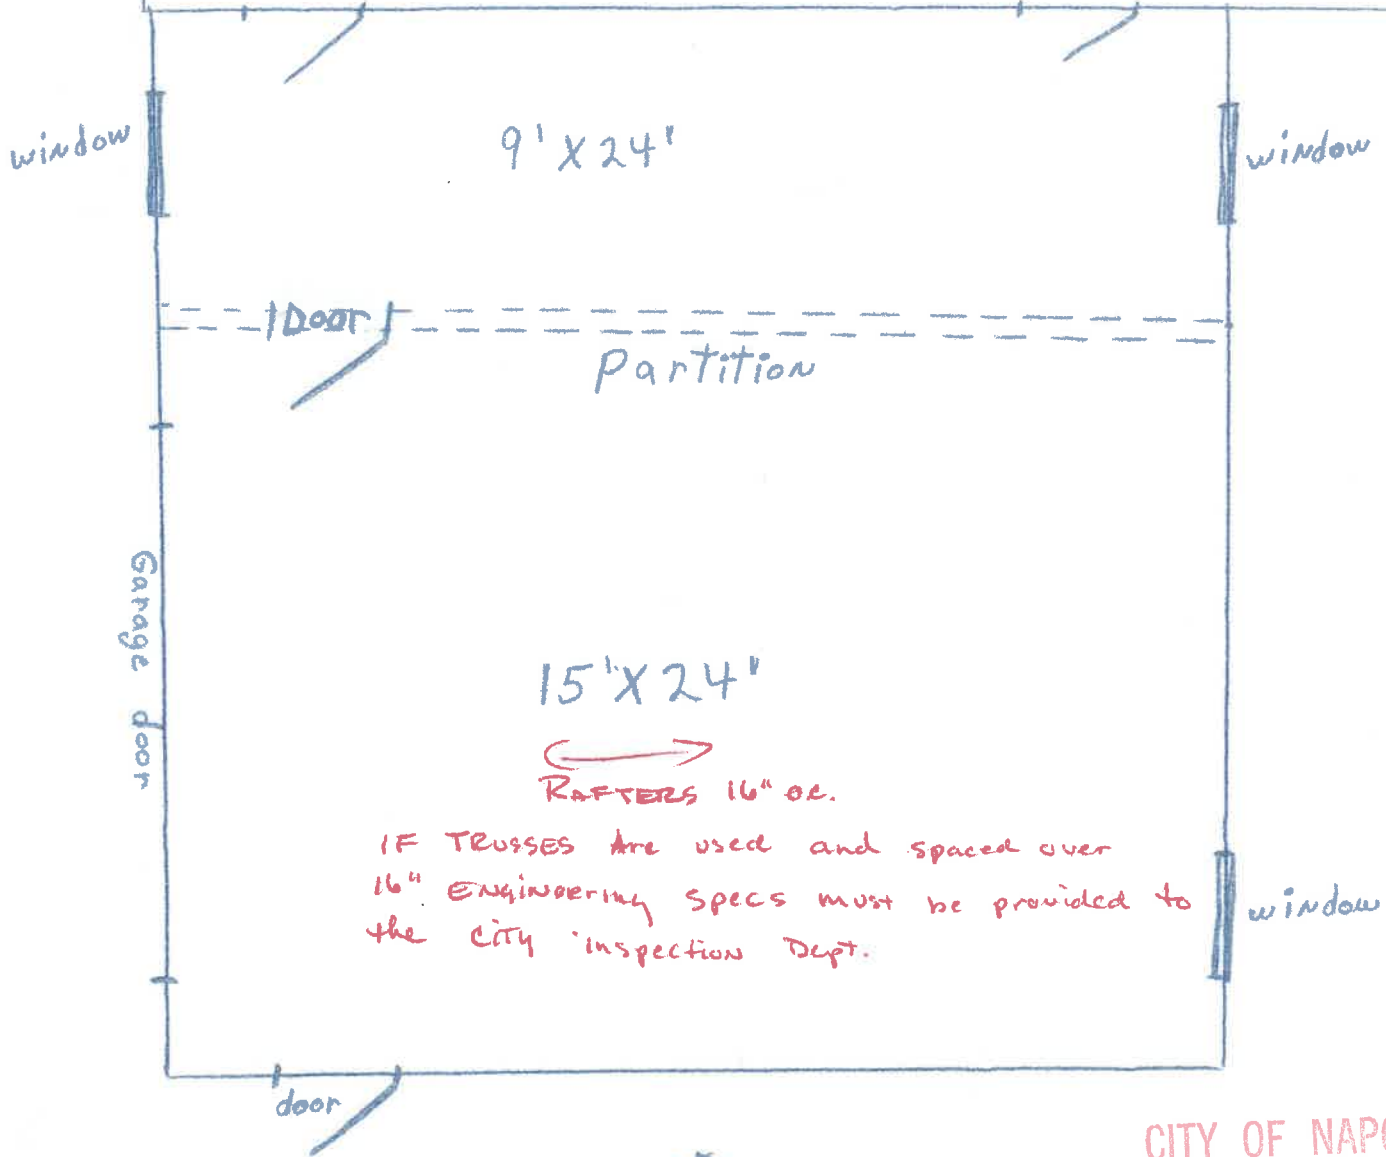 window
9' X 24'
window
Door
Partition
Garage door
15' X 24'
RAFTERS 16" O.C.
IF TRUSSES Are used and spaced over
16" ENGINEERING Specs must be provided to
the CITY inspection Dept.
window
door
CITY OF NAPO